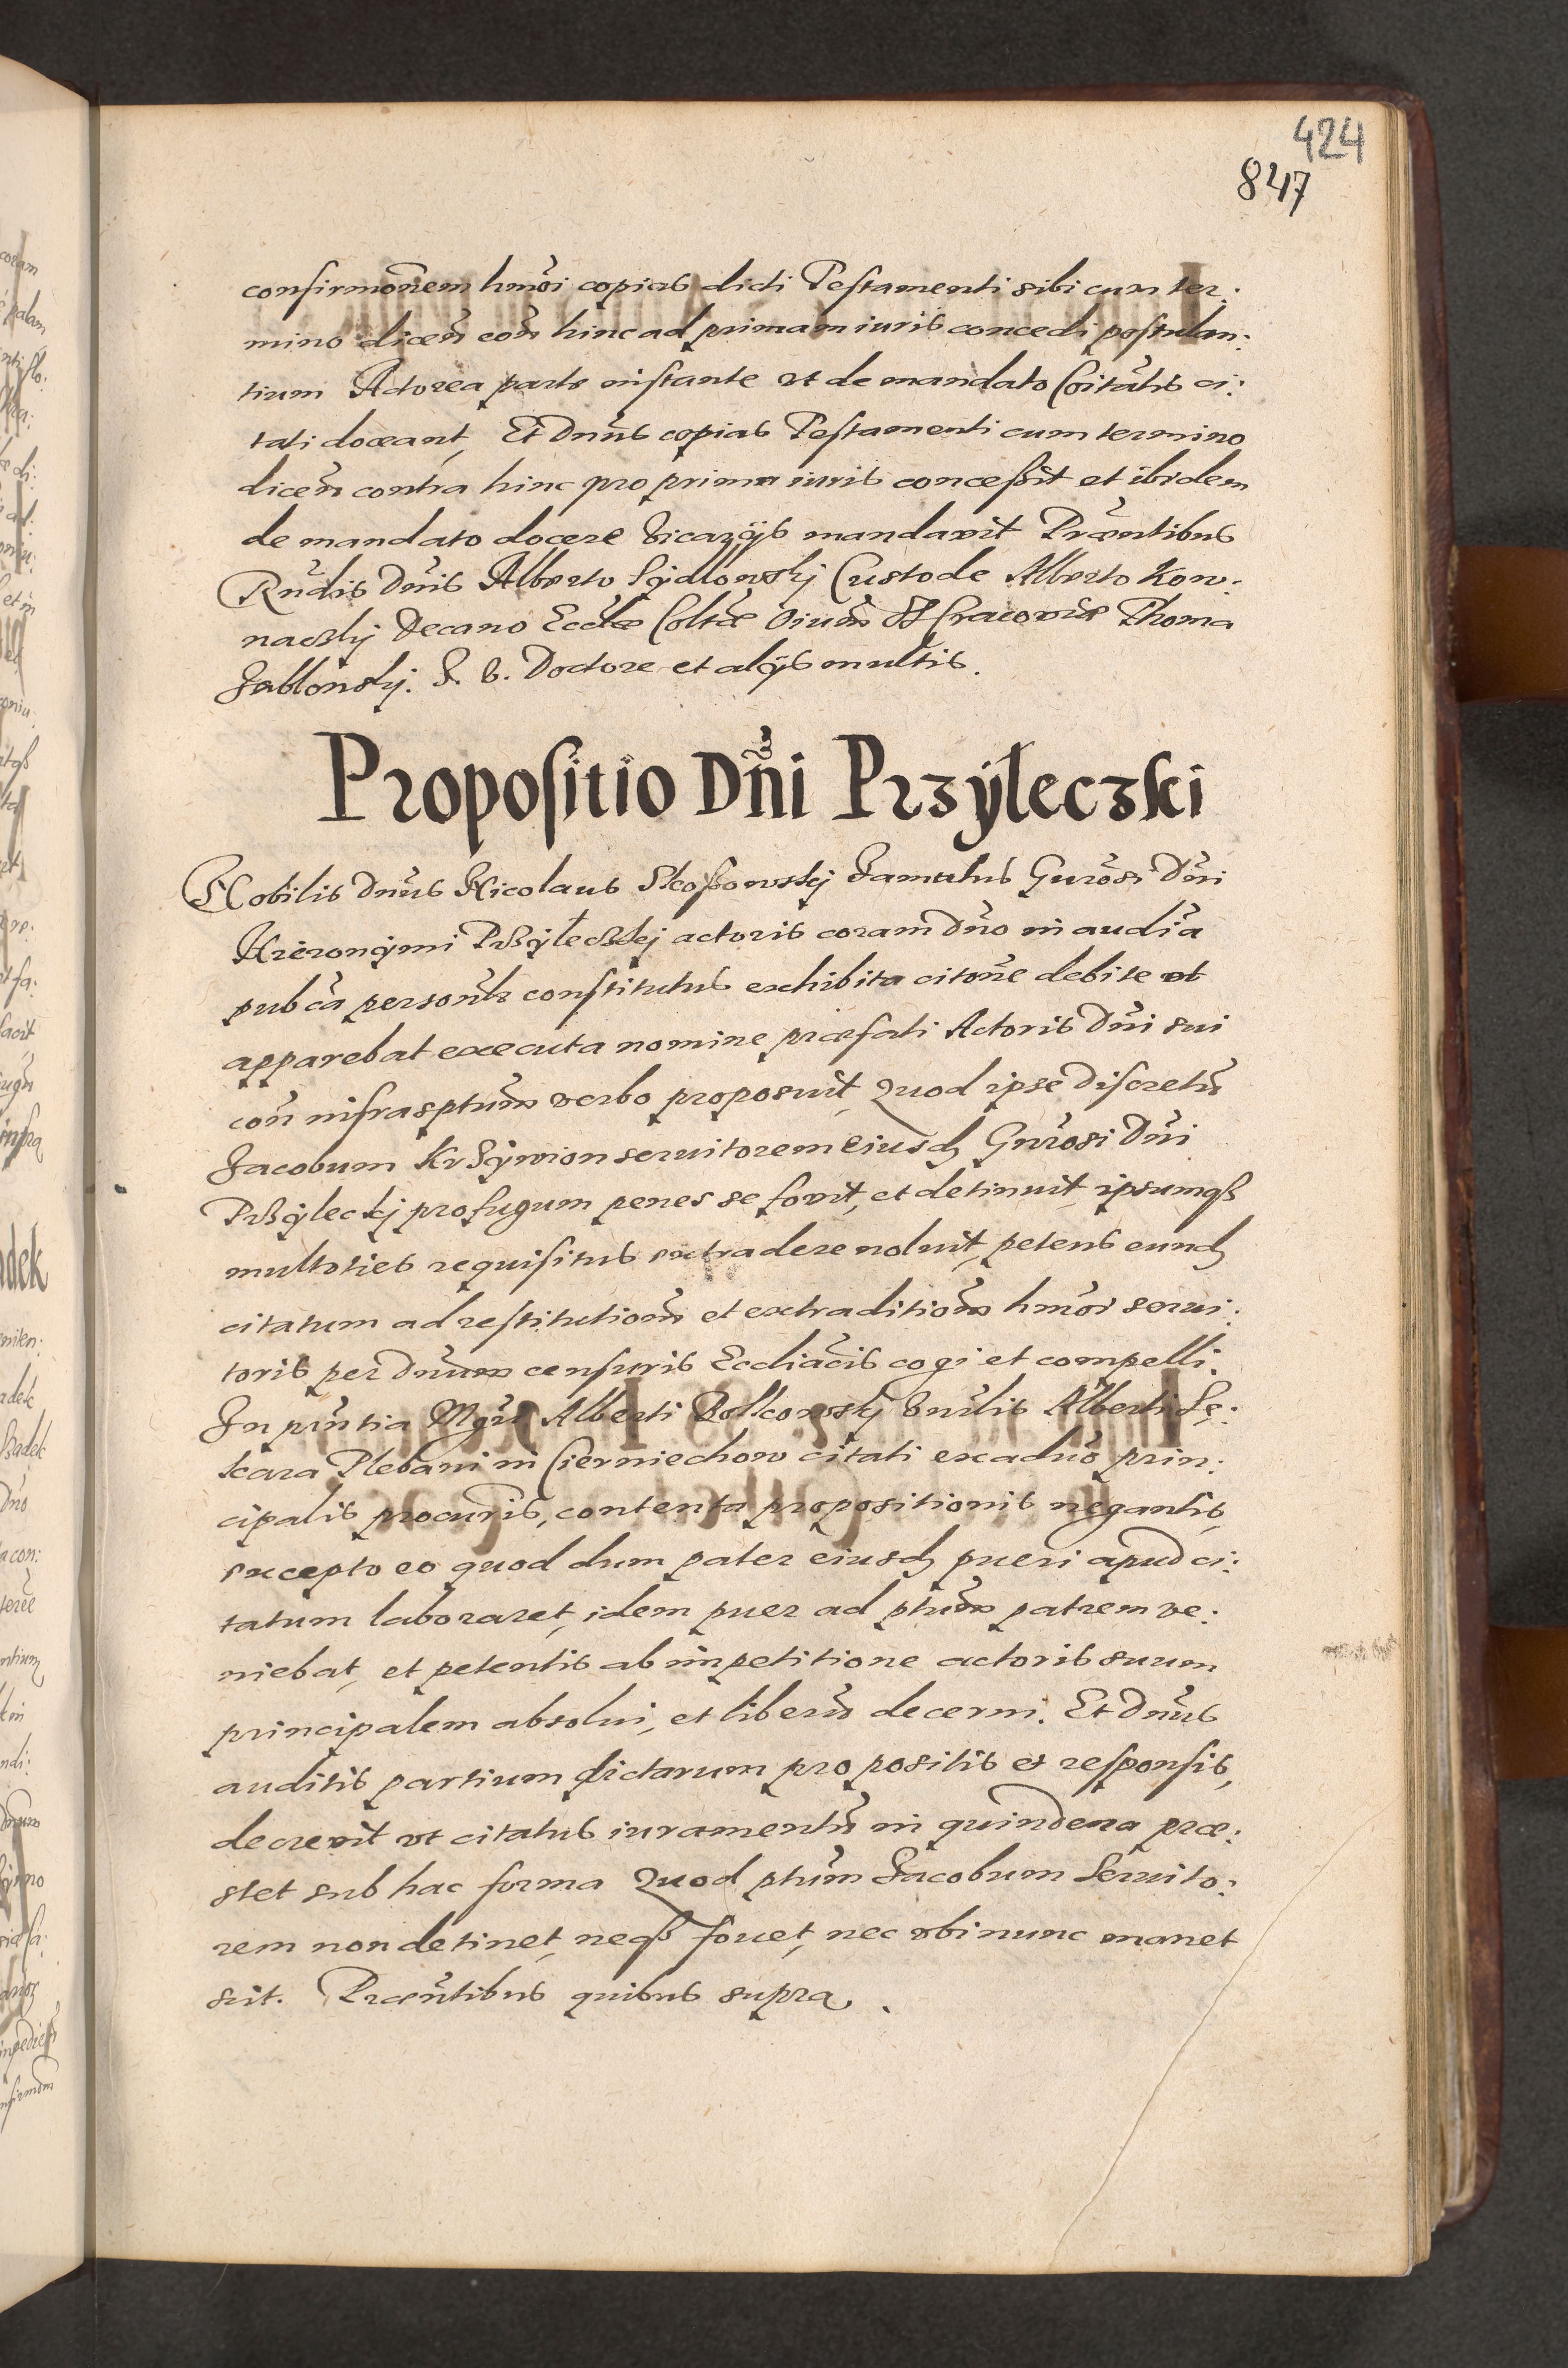 424
847
confirmõnem hmõi copias dicti Testamenti sibi cum ter:
mino dicen̄ con̄ hinc ad primam iuris concedi postulan:
tium Actorea parte instante vt de mandato Coitatis ci:
tati doceant, Et Dnus copias Testamenti cum termino
dicen̄ contra hinc pro prima iuris concessit et ibidem
de mandato docere Vicarijs mandavit Præntibus
Rndis Dnis Alberto Sijdlowskj Custode Alberto Kow:
naczkj Decano Eccliæ Coltæ Oium SS Cracoviæ Thoma
Jablonskj. J. V. Doctore et alijs multis.
Propositio Dñi Przÿleczki
Nobilis Dnus Nicolaus Skossowskj Famulus Gnrosi Dni
Hieronÿmi Przÿłeczkj actoris coram Dno in audia
pubca personlr constitutus exhibita citone debite vt
apparebat executa nomine præfati Actoris Dni sui
con̄ infrasptum verbo proposuit, Quod ipse Discretū
Jacobum Krzÿwion seruitorem eiusdȝ Gnrosi Dni
Przÿleckj profugum penes se fovit, et detinuit, ipsumqȝ
multoties requisitus extradere noluit, petens eundȝ
citatum ad restitutionē et extraditionē hmõi serui:
toris per Dnum censuris Ecclīacis cogi et compelli.
In pntia Mgri Alberti Bolkowskj Vnrlis Alberti Sę:
kara Plebani in Cierniechow citati ex aduo prin:
cipalis procuris, contenta propositionis negantis,
excepto eo quod dum pater eiusdȝ pueri apud ci:
tatum laboraret, idem puer ad ptum patrem ve:
niebat, et petentis ab impetitione actoris suum
principalem absolui, et liberū decerni. Et Dnus
auditis partium dictarum propositis et responsis,
decrevit vt citatus iuramentū in quindena præ:
stet sub hac forma Quod ptum Jacobum Seruito:
rem non detinet, neqȝ fouet, nec vbi nunc manet
scit. Præntibus quibus supra.